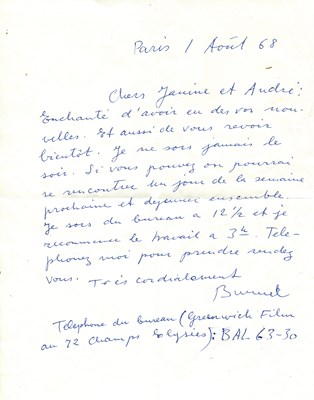 Paris 1 Août 68
Chers Janine et André:
Enchanté d'avoir eu des vos nou-
velles. Et aussi de vous revoir
bientôt. Je ne sors jamais le
soir. Si vous pouvez on pourrai
se rencontrer un jour de la semaine
prochaine et dejeuner ensemble.
Je sors du bureau a 12 1/2 et je
recommence le travail a 3h. Tele-
phonez moi pour prendre rendez
vous. Très cordialement
Buñuel
Telephone du bureau (Greenwich Film
au 72 Champs Elysées): BAL 63-30